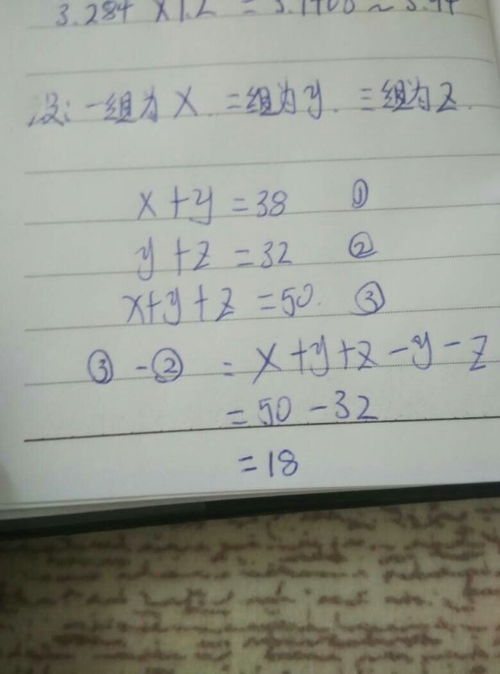 3.284 × 1.2 =
设: 一组为 x. 二组为 y. 三组为 z.
x + y = 38 ①
y + z = 32 ②
x + y + z = 50. ③
③ - ② = x + y + z - y - z
= 50 - 32
= 18